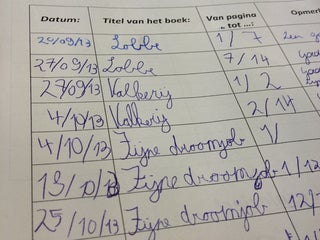 Datum: Titel van het boek: Van pagina Opmer
.. tot ...:
20/09/13 Lobbe 1/7 een
27/09/13 Lobbe 7/14
27/09/13 Valkerij 1/2
4/10/13 Valkerij 2/14
4/10/13 Fijne droomjob 1/
13/10/13 Fijne droomjob 1/12
25/10/13 Fijne droomjob 12/